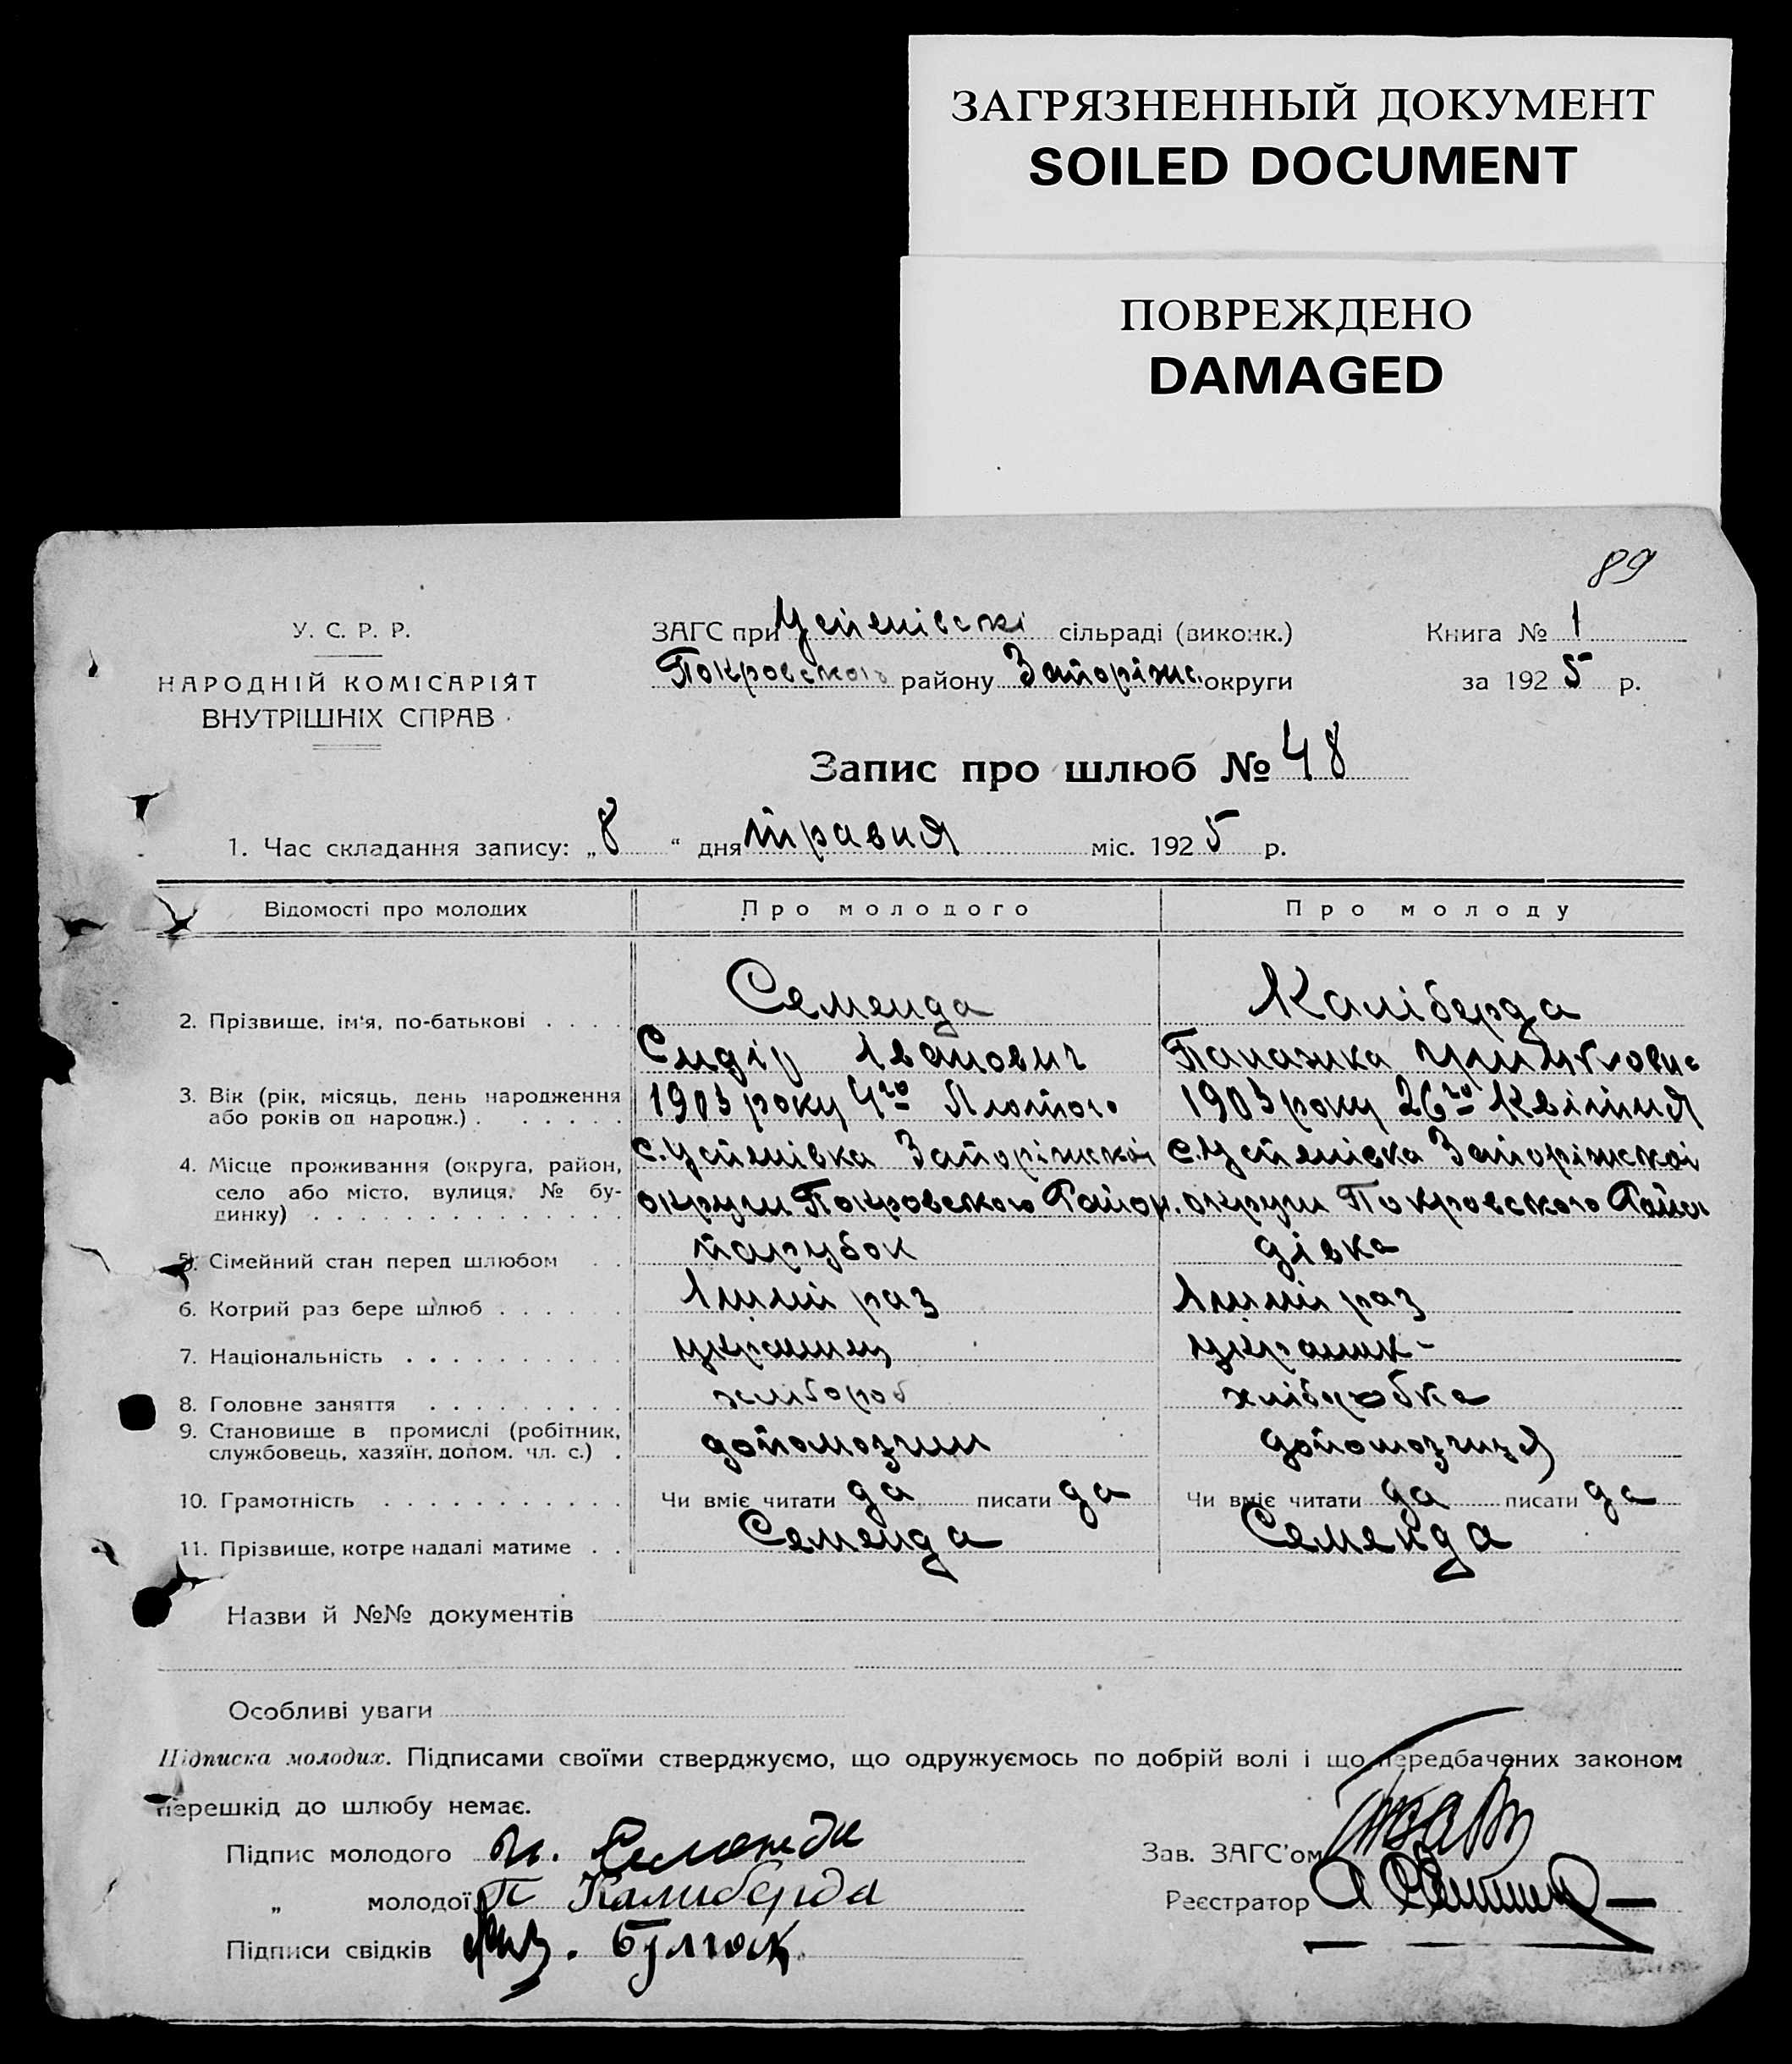 ЗАГРЯЗНЕННЫЙ ДОКУМЕНТ
SOILED DOCUMENT
ПОВРЕЖДЕНО
DAMAGED
89
У. С. Р. Р.
НАРОДНІЙ КОМІСАРІЯТ
ВНУТРІШНІХ СПРАВ
ЗАГС при Успенівскі сільраді (виконк.)
Покровського району Запоріжс. округи
Книга № 1
за 1925 р.
Запис про шлюб № 48
1. Час складання запису: „8“ дня травня міс. 1925 р.
Відомості про молодих Про молодого Про молоду
2. Прізвище, ім'я, по-батькові . . . . Семенда Каліберда
Сидір Іванович Панажка
3. Вік (рік, місяць, день народження 1903 року 4го Лютого 1903 року 26го Квітня
або років од народж.) . . . . . .
4. Місце проживання (округа, район, с. Успенівка Запоріжскоі с. Успенівка Запоріжскоі
село або місто, вулиця, № бу- округи Покровського Район. округи Покровського Район
динку) . . . . . . . . . . . . . . .
5. Сімейний стан перед шлюбом . . парубок дівка
6. Котрий раз бере шлюб . . . . . . 1ший раз 1ший раз
7. Національність . . . . . . . . . . украинц украинк-
8. Головне заняття . . . . . . . . . хлібороб хліборобка
9. Становище в промислі (робітник,
службовець, хазяїн, допом. чл. с.) . допомозчик допомозчиця
10. Грамотність . . . . . . . . . . . Чи вміє читати да писати да Чи вміє читати да писати да
11. Прізвище, котре надалі матиме . . Семенда Семенда
Назви й №№ документів
Особливі уваги
Підписка молодих. Підписами своїми стверджуємо, що одружуємось по добрій волі і що передбачених законом
перешкід до шлюбу немає.
Підпис молодого Семенда
Зав. ЗАГС'ом
„ молодої П Калиберда
Реєстратор
Підписи свідків